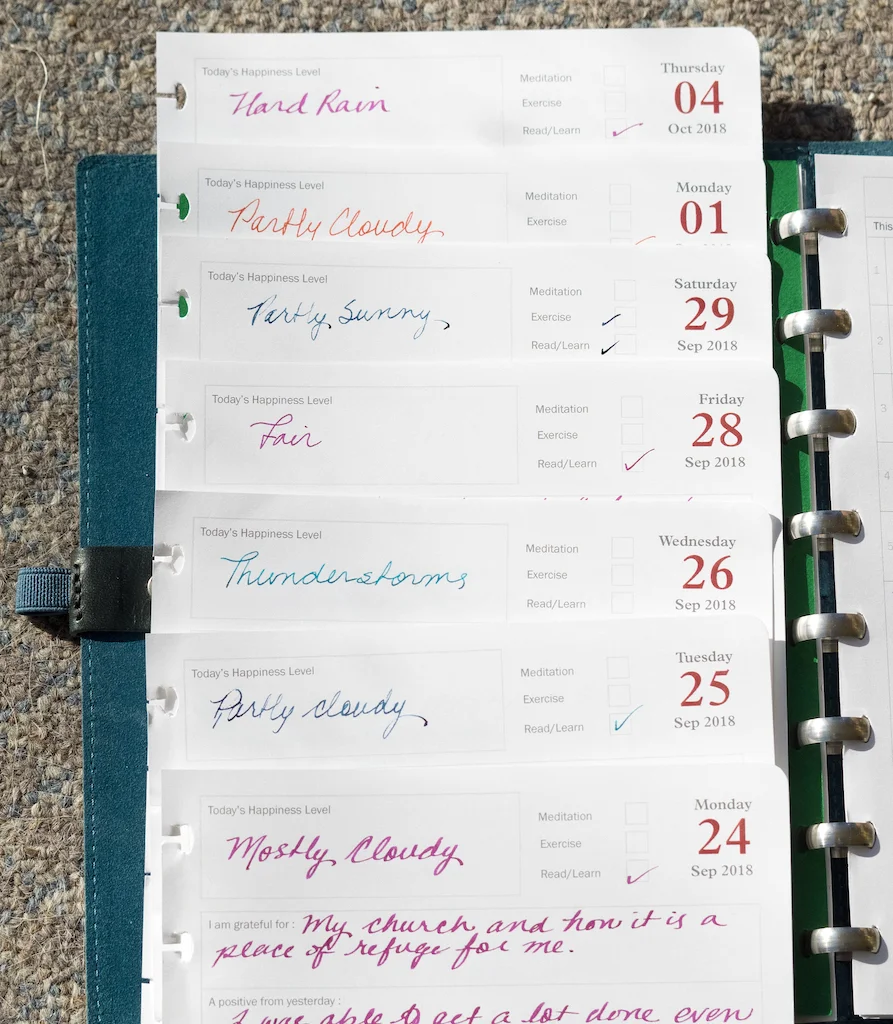 Today's Happiness Level
Hard Rain
Meditation
Exercise
Read/Learn
Thursday
04
Oct 2018
Today's Happiness Level
Partly Cloudy
Meditation
Exercise
Monday
01
Today's Happiness Level
Partly Sunny
Meditation
Exercise
Read/Learn
Saturday
29
Sep 2018
Today's Happiness Level
Fair
Meditation
Exercise
Read/Learn
Friday
28
Sep 2018
Today's Happiness Level
Thunderstorms
Meditation
Exercise
Read/Learn
Wednesday
26
Sep 2018
Today's Happiness Level
Partly cloudy
Meditation
Exercise
Read/Learn
Tuesday
25
Sep 2018
Today's Happiness Level
Mostly Cloudy
Meditation
Exercise
Read/Learn
Monday
24
Sep 2018
I am grateful for : My church and how it is a
place of refuge for me.
A positive from yesterday :
I was able to get a lot done even
This
1
2
3
4
5